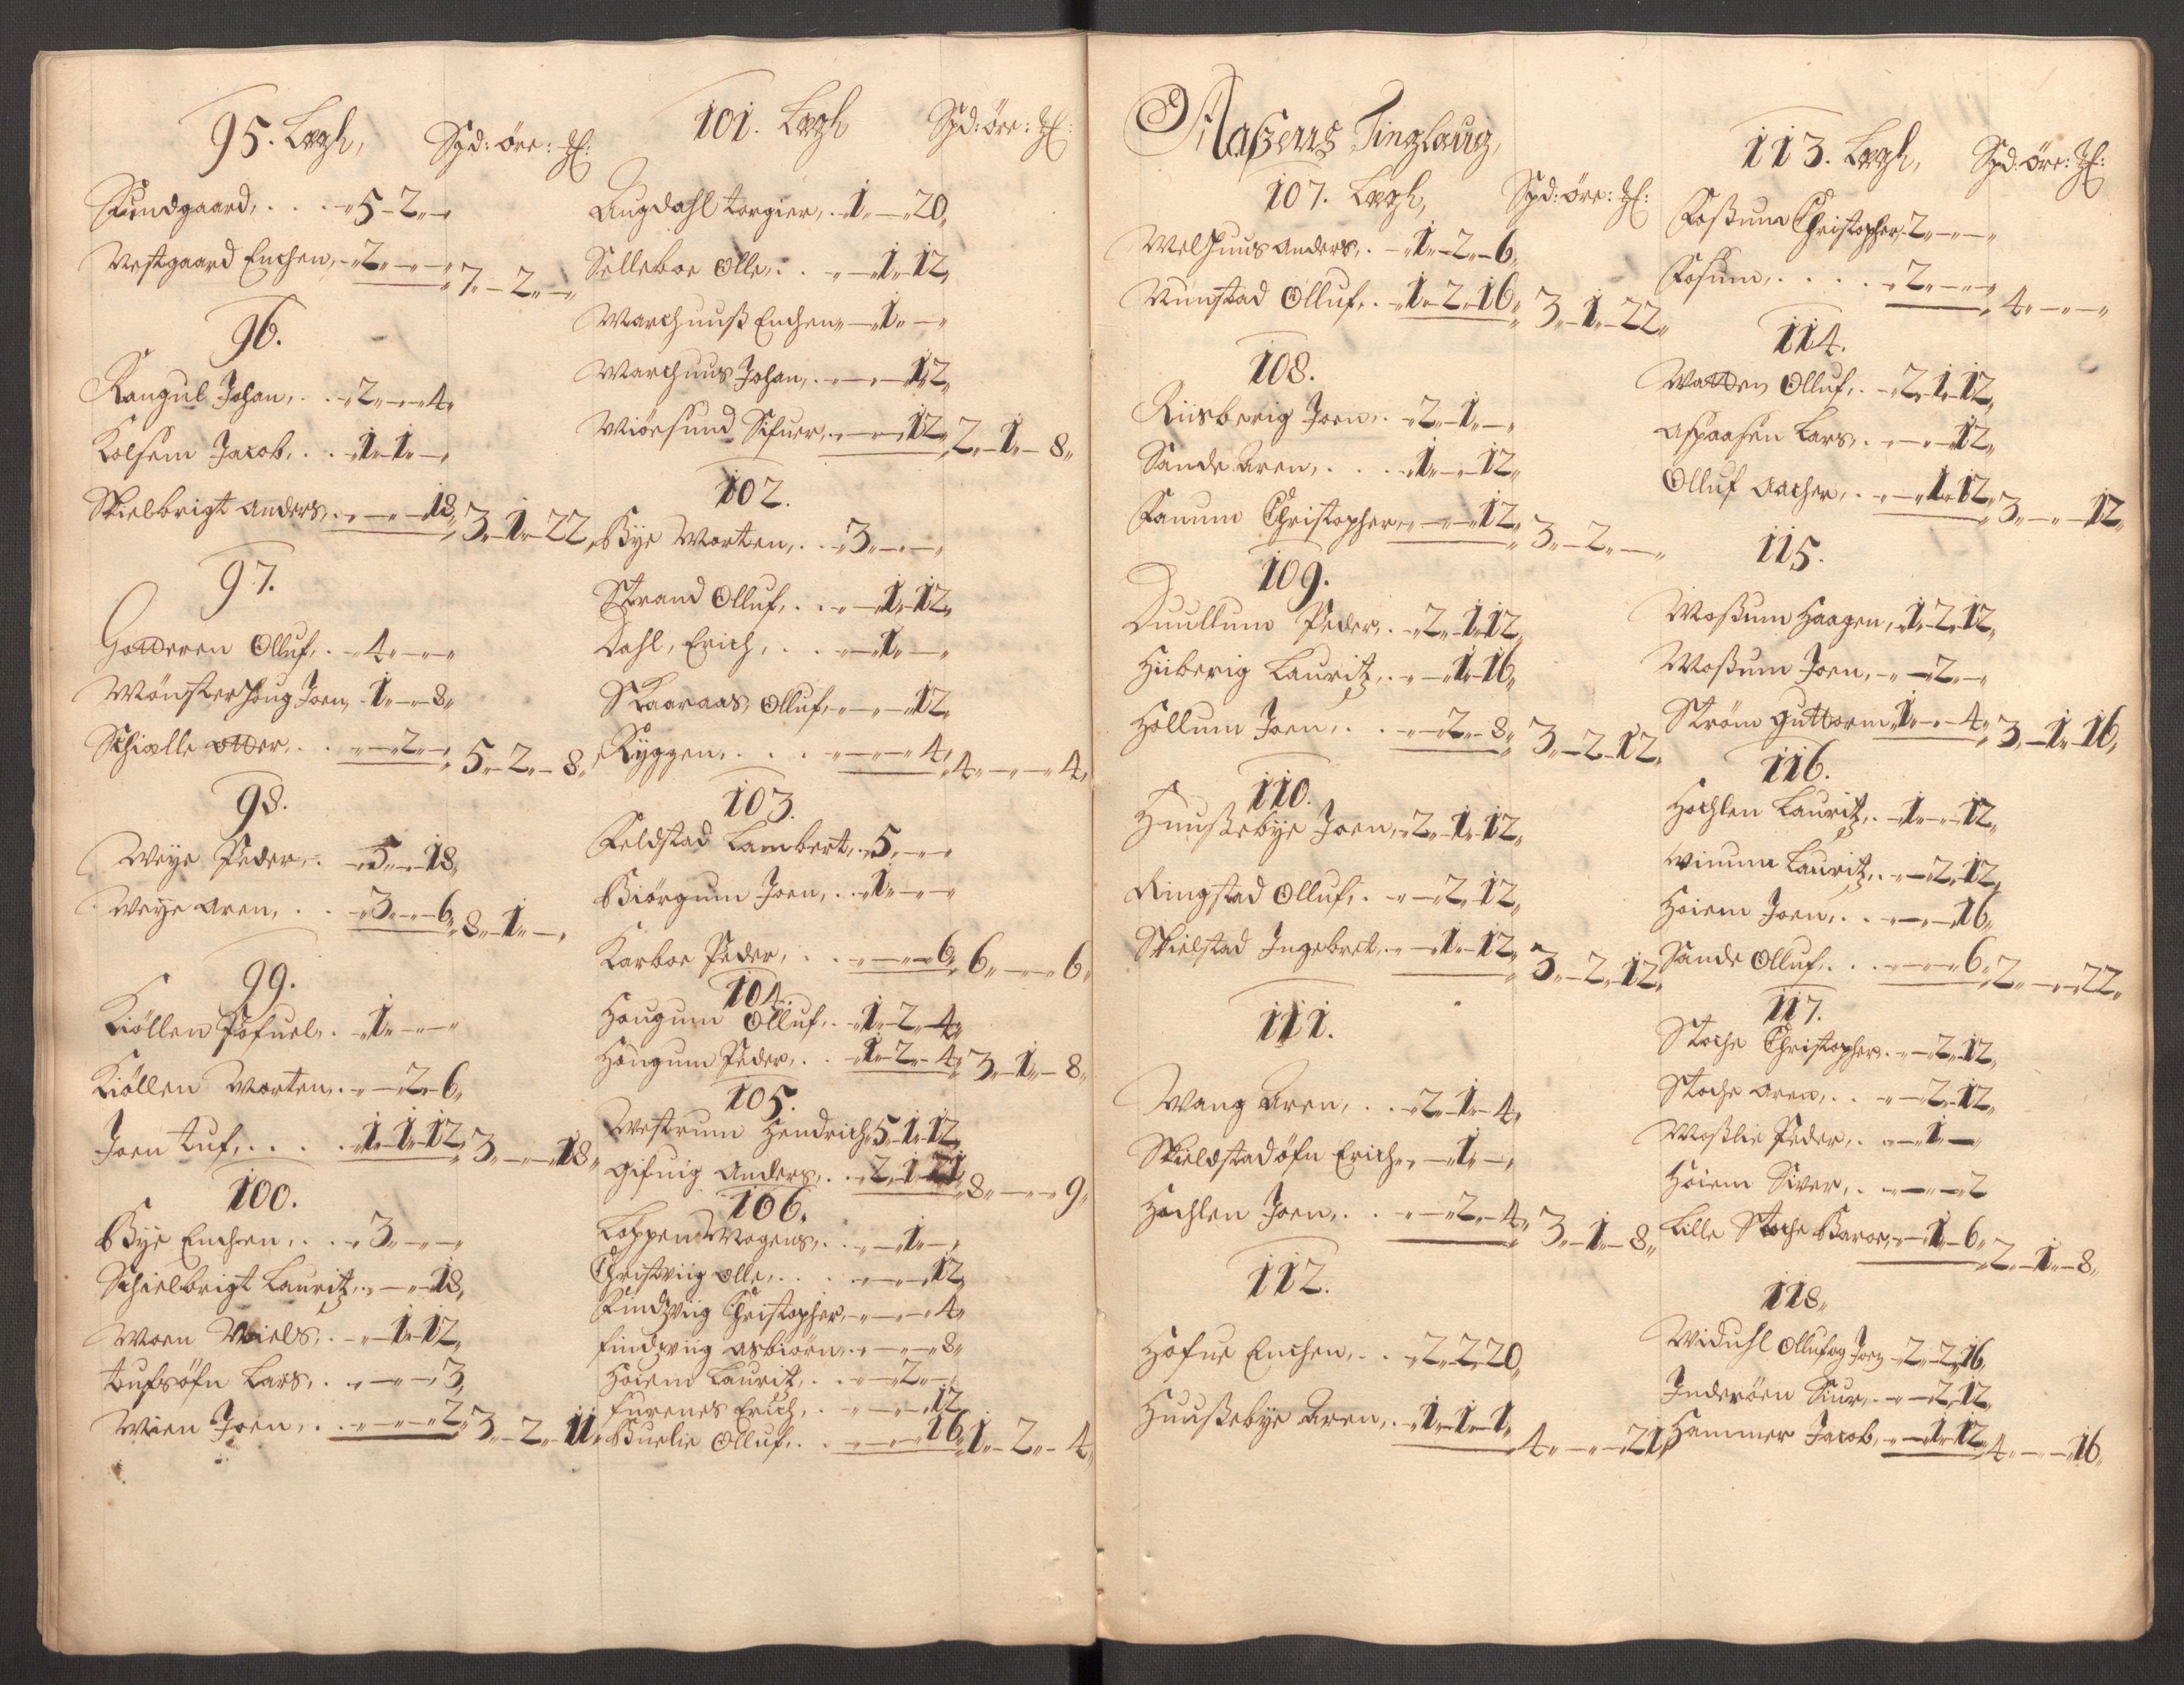 95. Legh, Spd: öre: ₰:
Sundgaard, . . . „5„-2„-„
Vestgaard Enchen, „2„-„-„ 7„-2„-„
96.
Rangul Johan, . . „2„-„-4„
Kolsem Jacob, . . „1„-1„-„
Skielbrigt anders, . „-„-18„ 3„-1„-22„
97.
Gotteren Olluf, . „4„-„-„
Mönsterhoug Joen, „1„-„-8„
Schialle otter, . . „-„2„-„ 5„-2„-8„
98.
Weye Peder, . „5„-„-18„
Weye aren, . . „3„-„-6„ 8„-1„-„
99.
Kiöllen Pofuel, . „1„-„-„
Kiöllen Morten, . „-„2„-6„
Joen tuf, . . . . „1„-1„-12„ 3„-„-18„
100.
Bye Enchen, . . „3„-„-„
Schielbrigt Lauritz, „-„-18„
Moen Niels, . „-„1„-12„
tufsöfn Lars, . „-„-„3„
Moen Joen, . . „-„-„2„ 3„-2„-11„
101. Legh Spd: öre: ₰:
Augdahl torgier, . „1„-„20„
Selleboe Olle, . . „-„1„-12„
Marchuuß Enchen „-„1„-„
Marchuus Johan, . „-„-„12„
Miösund Sifuer, „-„-„12„ 2„-1„-8„
102.
Bye Morten, . . „3„-„-„
Strand Olluf, . . „-„1„-12„
Dahl, Erich, . . „-„1„-„
Skaaraas, Olluf, „-„-„12„
Ryggen, . . . „-„-„4„ 4„-„-„4„
103.
Feldstad Lambert, „5„-„-„
Biörgum Joen, . „1„-„-„
Karboe Peder, . . „-„-„6„ 6„-„-„6„
104.
Hougum Olluf, . „1„-2„-4„
Hougum Peder, . . „1„-2„-4„ 3„-1„-8„
105.
Westrum Hendrich „5„-1„-12„
Gifuig Anders, . . „2„-1„-21„ 8„-„-„9„
106.
Loppen Mogens, . „-„1„-„
Christviig olle, . . „-„-„12„
Findzviig Christopher, „-„-„4„
findzviig asbiörn, . „-„-„8„
Hoiem Lauritz, . . „-„2„-„
furenes Erich, . „-„-„12„
Buelie Olluf, . . „-„-„16„ 1„-2„-4„
Aaßens Tinglaug,
107. Legh, Spd: öre: ₰:
Melhuus anders, . „1„-2„-6„
Vunstad Olluf, . „1„-2„-16„ 3„-1„-22„
108.
Riisberig Joen, . „2„-1„-„
Sande aren, . . . „1„-„-12„
Fanum Christopher, „-„-„12„ 3„-2„-„
109.
Duullum Peder, . „2„-1„12„
Hiiberig Lauritz, . „-„1„-16„
Hollum Joen, . . „-„2„-8„ 3„-2„-12„
110.
Huußebye Joen, „2„-1„-12„
Ringstad Olluf, . „-„2„-12„
Skielstad Ingebret, „-„1„-12„ 3„-2„-12„
111.
Wang Aren, . . „2„-1„-4„
Skieldstadöfn Erich, „-„1„-„
Hachlen Joen, . . „-„2„-4„ 3„-1„-8„
112.
Hofue Enchen, . . „2„-2„20„
Huußebye aren, . „1„-1„-1„ 4„-„-„21„
113. Legh, Spd: öre: ₰:
Foßum Christopher, „2„-„-„
Foßum, . . . . „2„-„-„ 4„-„-„
114.
Watten Olluf, . „2„-1„-12„
Aspaasen Lars, . „-„-„12„
Olluf Aacher, . „-„1„-12„ 3„-„-„12„
115.
Moßum Haagen, „1„-2„-12„
Moßum Joen, „-„2„-„
Ström guttorm „1„-„-4„ 3„-1„-16„
116.
Hochlen Lauritz, . „1„-„-12„
Winum Lauritz, . „-„2„-12„
Hoiem Joen, . . „-„-„16„
Sande Olluf, . . . „-„-„6„ 2„-„-„22„
117.
Stoche Christopher, „-„2„-12„
Stoche aren, . . „-„2„-12„
Moßlie Peder, . „-„1„-„
Hoiem Siver, . „-„-„2
Lille Stoche Baroe, „-„1„-6„ 2„-1„-8„
118„
Widuhl Olluf og Joen „2„-2„-16„
Inderöen Siur, . „-„2„-12„
Hammer Jacob, „-„1„-12„ 4„-„-„16„